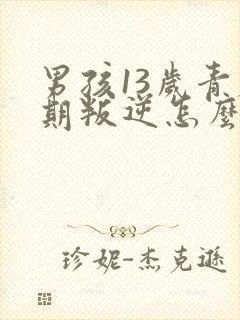 男孩13歲青
期叛逆怎麼
珍妮-杰克遜